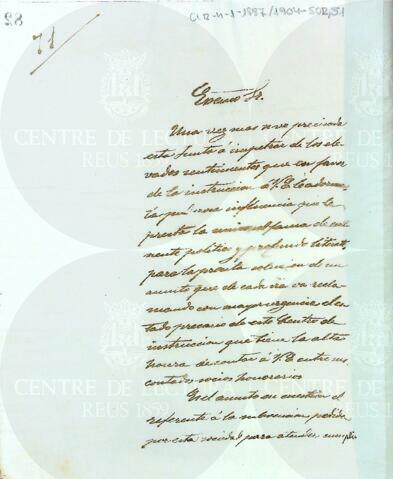 CLR-4-1-1887/1904-502,51
82
71
Excmo Sr.
Una vez mas se ve precisada
esta Junta á impetrar de los ele-
vados sentimientos que en favor
de la instruccion á V.E. le adornan
la influencia que le
presta la universal fama de emi-
nente politico y profundo literato,
para la pronta solucion de un
asunto que de cada dia va recla-
mando con mayor urgencia el es-
tado precario de este Centro de
instruccion que tiene la alta
honra de contar á V.E. entre sus
contados socios honorarios
Es el asunto en cuestion el
referente á la subvencion pedida
por esta sociedad para atender cumpli-
CENTRE DE LECTURA
REUS 1859
CENTRE DE LECTURA
REUS 1859